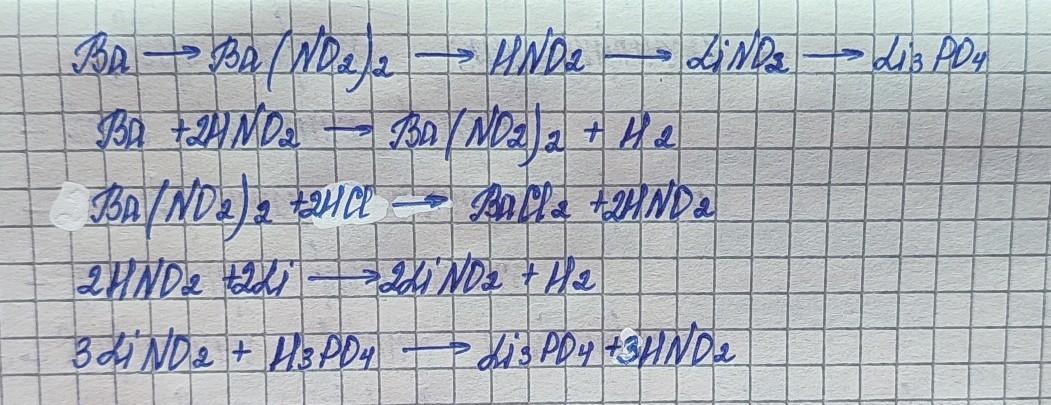 Ba → Ba(NO2)2 → HNO2 → LiNO2 → Li3PO4
Ba + 2HNO2 → Ba(NO2)2 + H2
Ba(NO2)2 + 2HCl → BaCl2 + 2HNO2
2HNO2 + 2Li → 2LiNO2 + H2
3LiNO2 + H3PO4 → Li3PO4 + 3HNO2